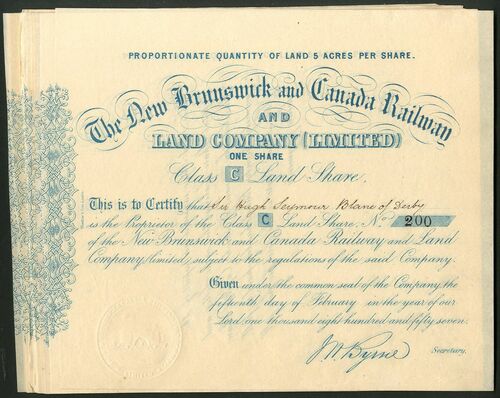 PROPORTIONATE QUANTITY OF LAND 5 ACRES PER SHARE.
The New Brunswick and Canada Railway
AND
LAND COMPANY (LIMITED)
ONE SHARE
Class C Land Share.
This is to Certify that Sir Hugh Seymour Blane of Derby
is the Proprietor of the Class C Land Share, No. 200
of the New Brunswick and Canada Railway and Land
Company limited, subject to the regulations of the said Company.
Given under the common seal of the Company, the
fifteenth day of February in the year of our
Lord one thousand eight hundred and fifty seven.
J.W. Byrne Secretary.